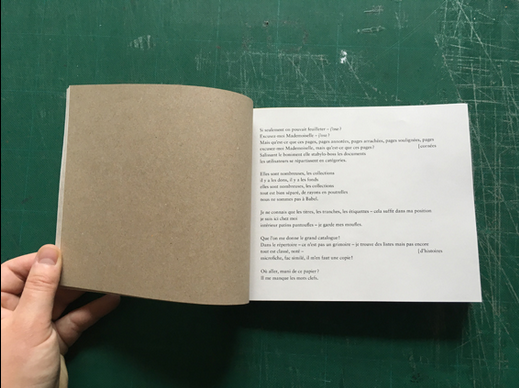 si seulement on pouvait feuilleter – j'ose !
Excusez-moi Mademoiselle – j'ose !
Mais qu'est-ce que ces pages, pages annotées, pages arrachées, pages soulignées, pages
[cornées
excusez-moi Mademoiselle, mais qu'est-ce que ces pages ?
les utilisateurs se répartissent en catégories.
Elles sont nombreuses, les collections
il y a les dons, il y a les fonds
elles sont nombreuses, les collections
tout est bien séparé, de rayons en
nous ne sommes pas à Babel.
Je ne connais que les titres, les tranches, les étiquettes – cela suffit dans ma position
je suis ici chez moi
intérieur patins pantoufles – je garde mes moufles.
Que l'on me donne le grand catalogue !
Dans le répertoire – ce n'est pas un grimoire – je trouve des listes mais pas encore
[d'histoires
tout est classé, noté –
microfiche, fac-similé, il m'en faut une copie !
Où aller, muni de ce papier ?
Il me manque les mots-clefs,